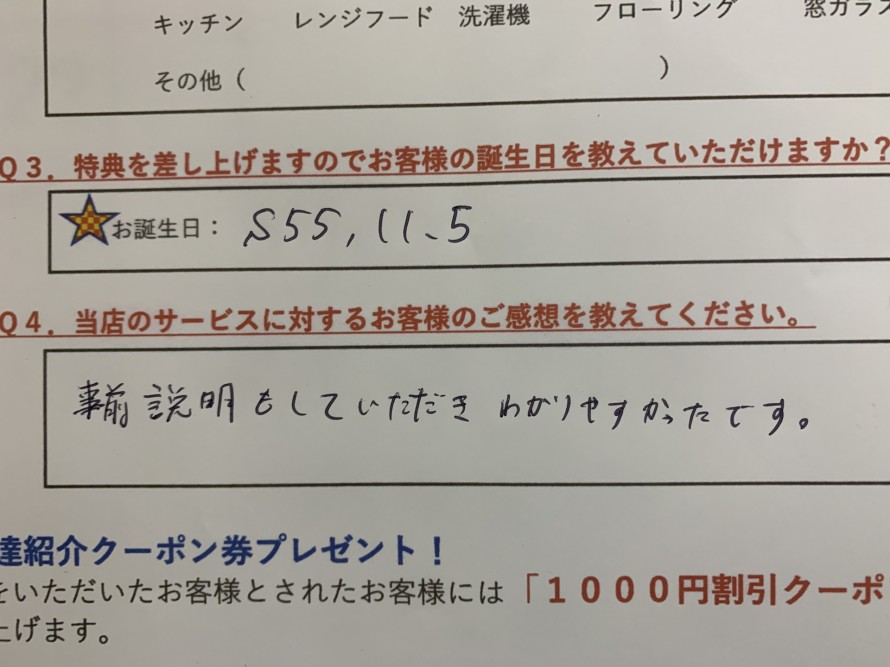 キッチン レンジフード 洗濯機 フローリング 窓ガラス
その他（ ）
Q３．特典を差し上げますのでお客様の誕生日を教えていただけますか？
お誕生日： S55,11、5
Q４．当店のサービスに対するお客様のご感想を教えてください。
事前説明もしていただき わかりやすかったです。
達紹介クーポン券プレゼント！
をいただいたお客様とされたお客様には「１０００円割引クーポ
上げます。